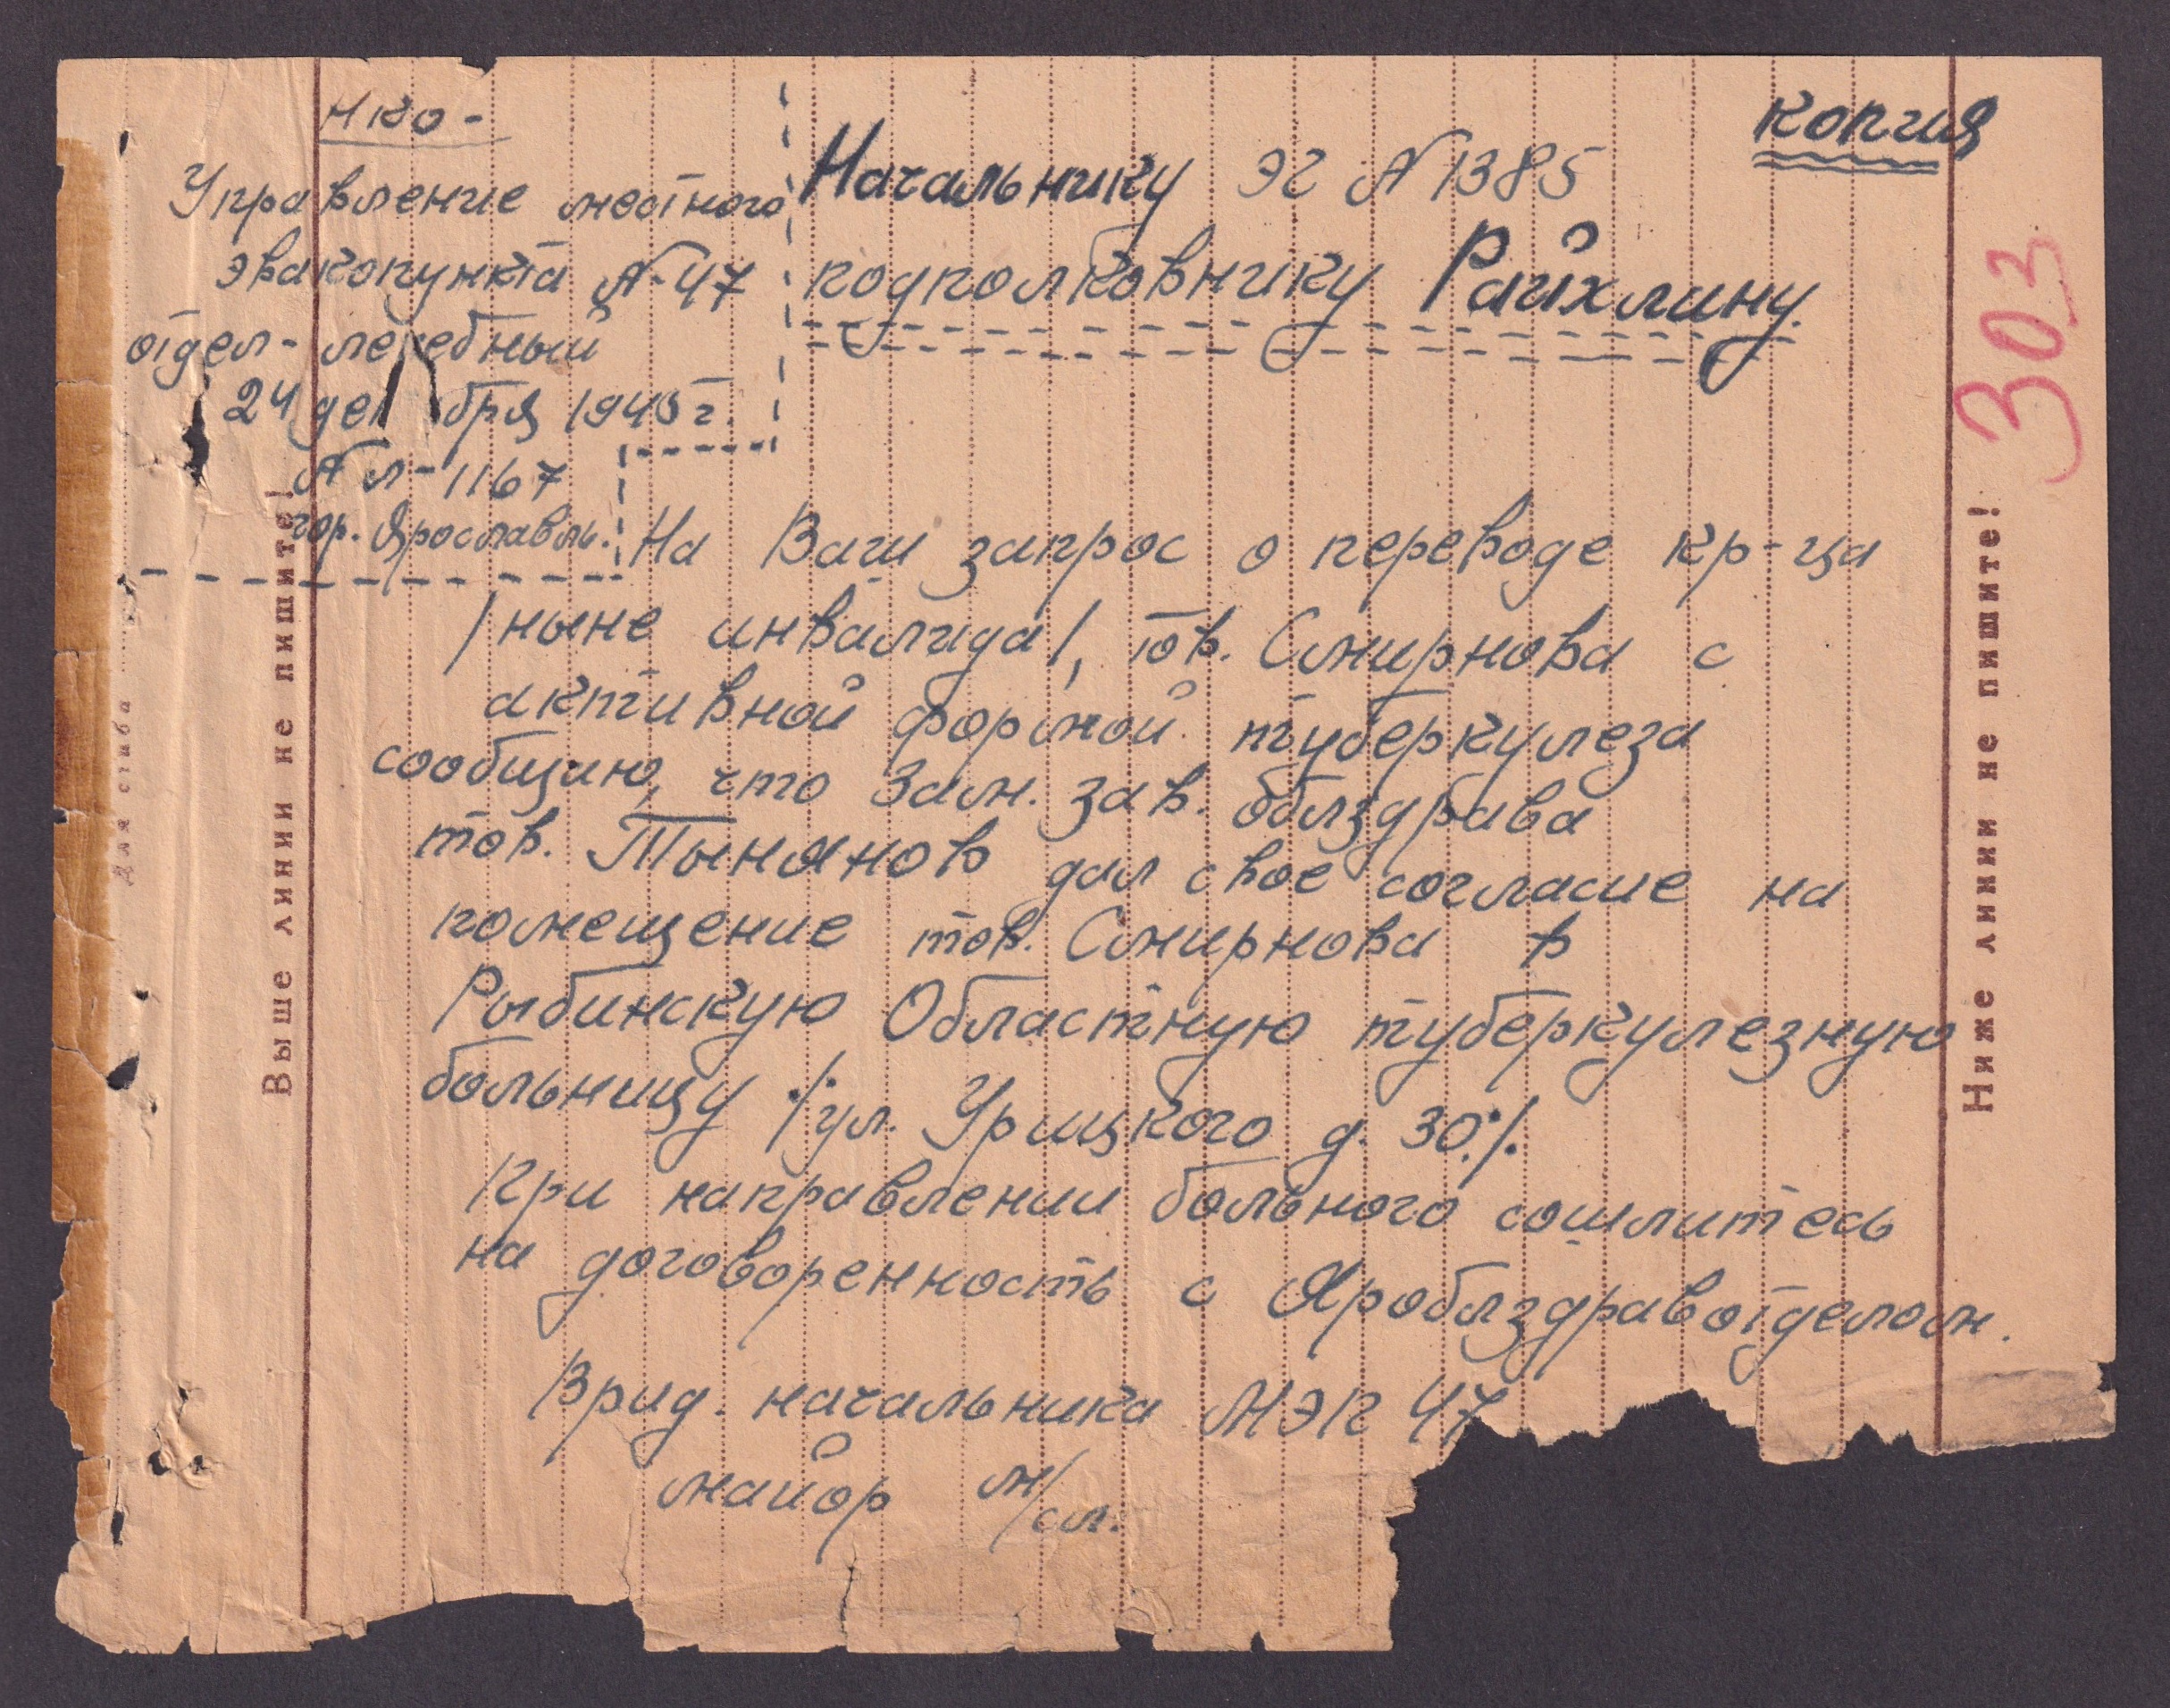 копия
303
НКО-
Управление местного
эвакопункта № 47
отдел - лечебный
24 декабря 1945 г.
№ л-1167
гор. Ярославль.
Начальнику ЭГ № 1385
подполковнику Райхлину.
На Ваш запрос о переводе кр-ца
/ныне инвалида/, тов. Смирнова с
активной формой туберкулеза
сообщаю, что Зам. зав. облздрава
тов. Тынянов дал свое согласие на
помещение тов. Смирнова в
Рыбинскую Областную туберкулезную
больницу ·/·ул. Урицкого д. 30·/·
При направлении больного сошлитесь
на договоренность с Яроблздравотделом.
Врид. начальника МЭП 47
майор м/сл.
Выше линии не пишите!
Ниже линии не пишите!
Для сгиба